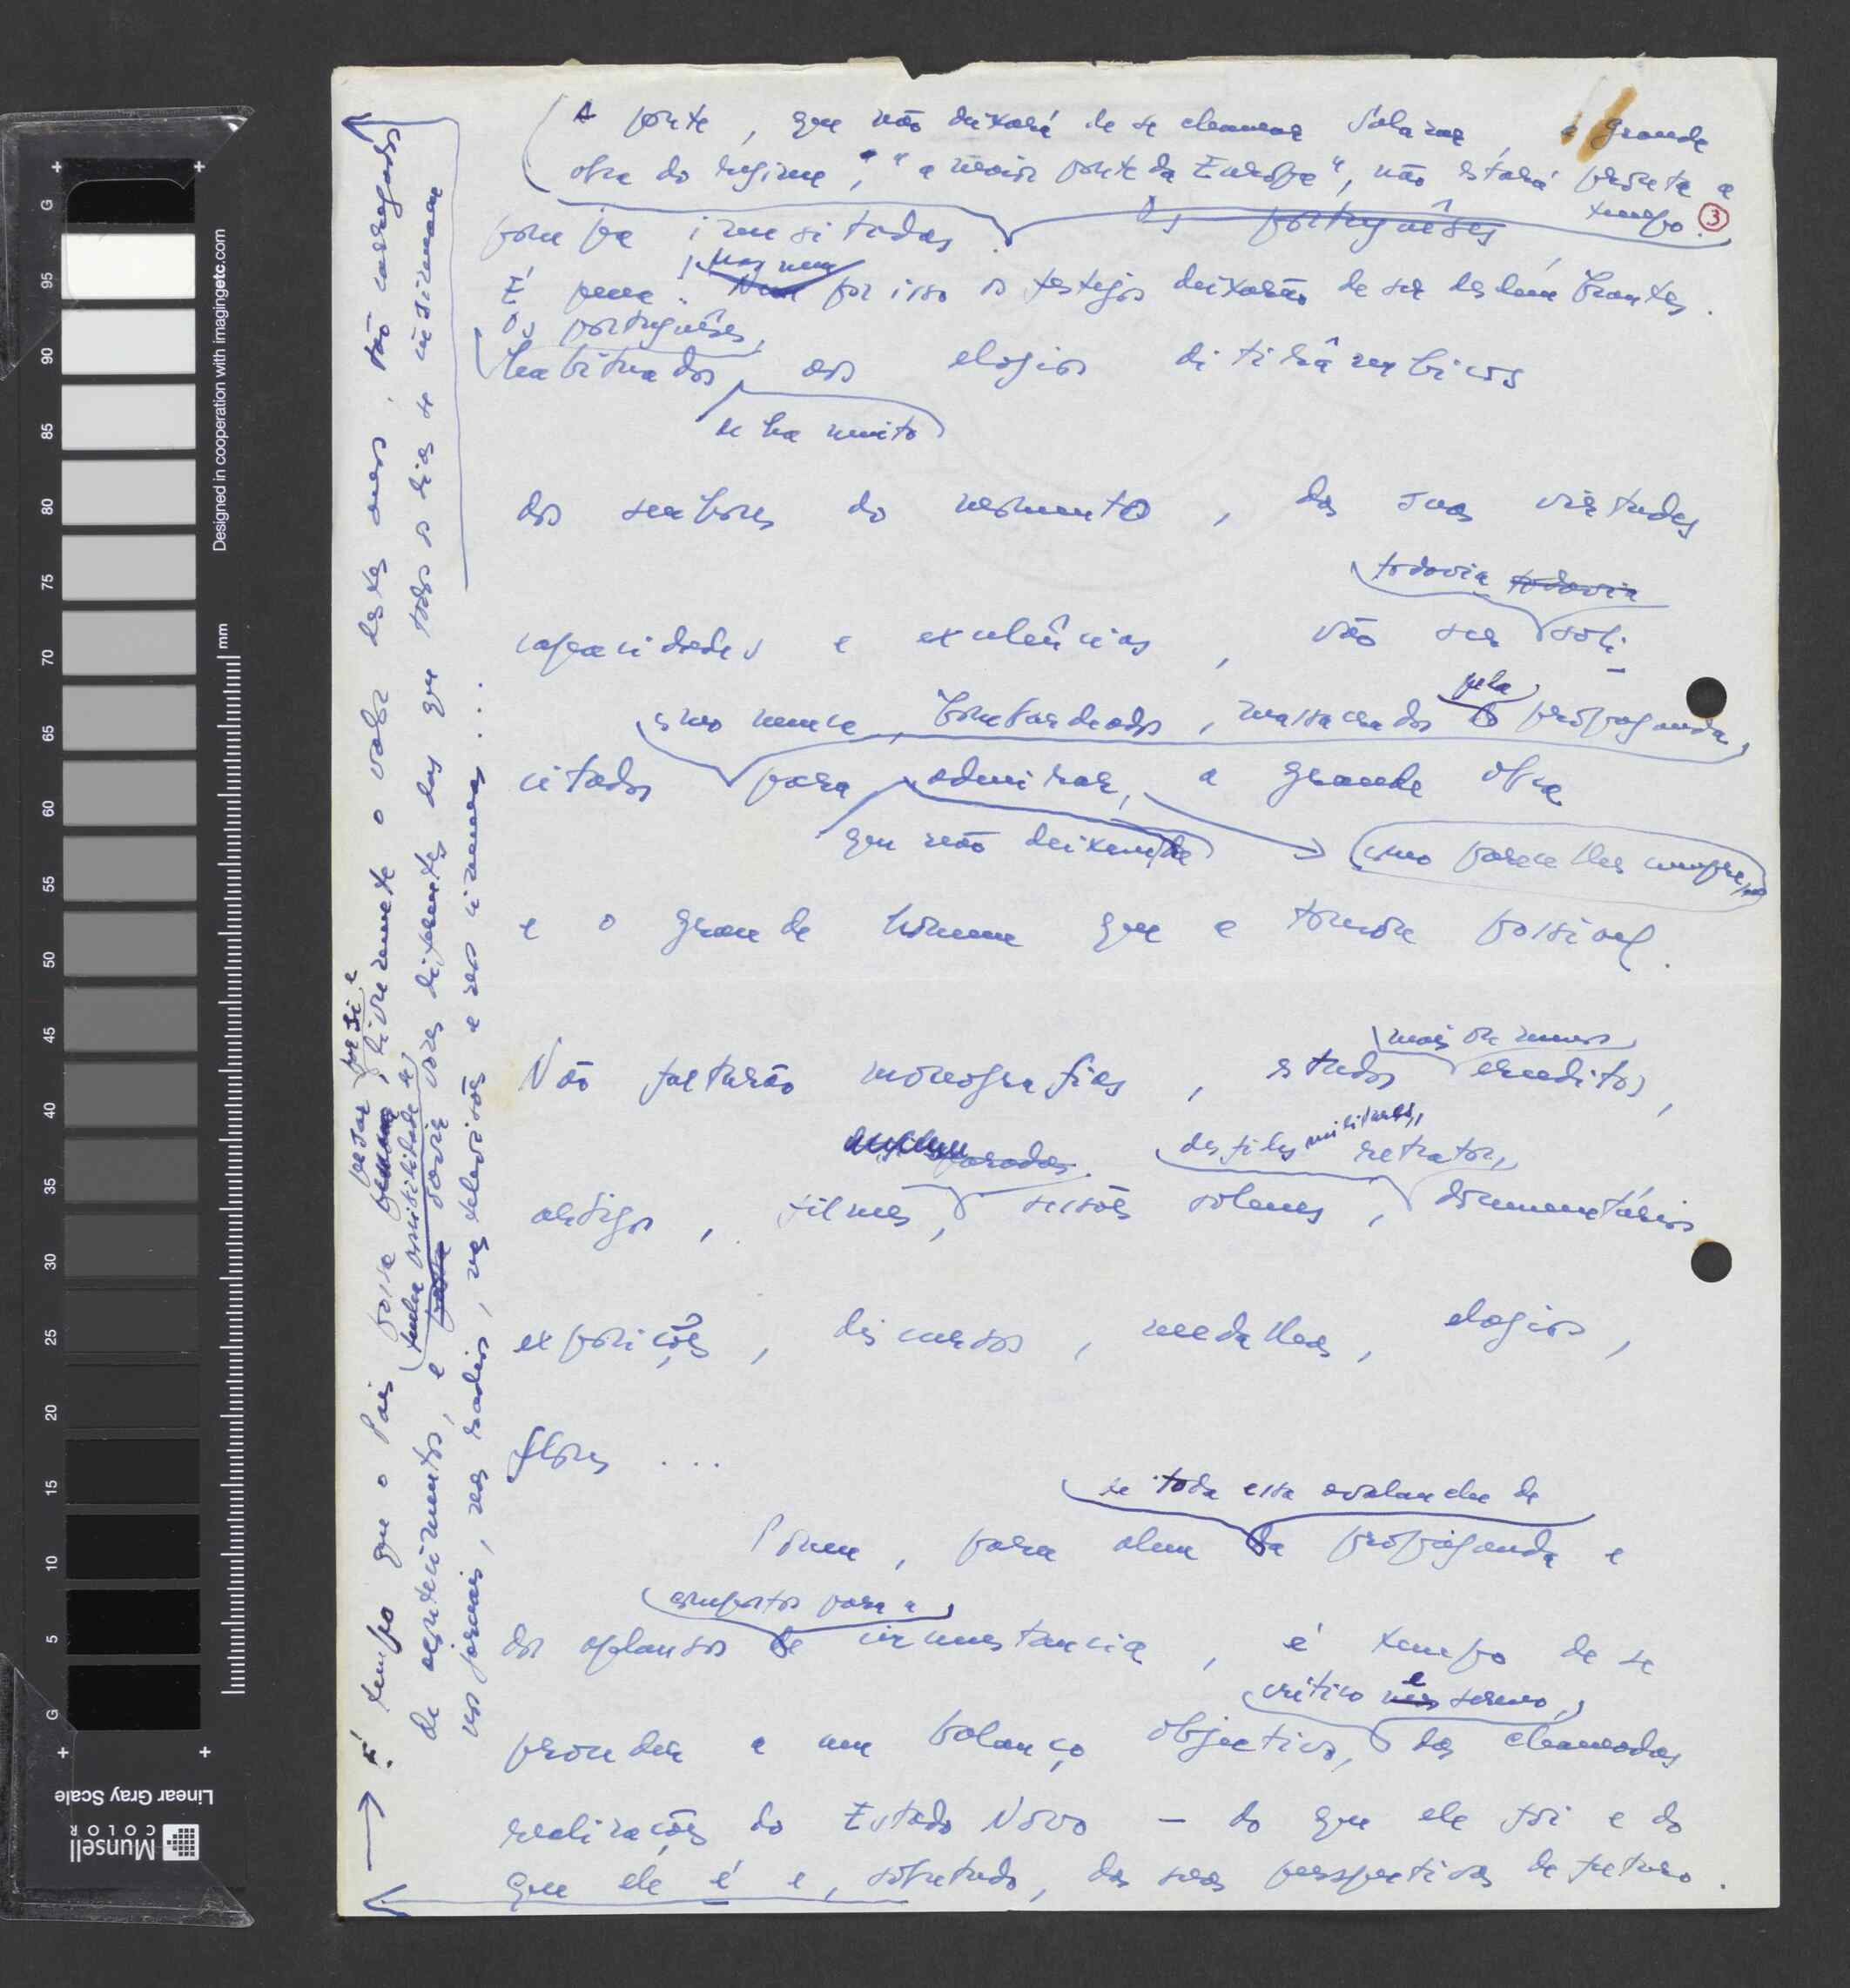 A ponte, que não deixará de se chamar Salazar, a grande
obra do regime, "a maior ponte da Europa", não estará pronta a
tempo. 3
pompa inusitadas. Os portugueses
mas nem
É pena. Nem por isso os festejos deixarão de ser deslumbrantes.
Os portugueses,
habituados aos elogios ditirâmbicos
de há muito
dos senhores do momento, das suas virtudes
todavia todavia
capacidades e excelências, vão ser soli-
pela
como nunca, bombardeados, massacrados propaganda,
citados para admirar, a grande obra
que não deixem de
como parece lhes cumpre,
e o grande homem que a tornou possivel.
mais ou menos
Não faltarão monografias, estudos eruditos,
paradas. desfiles militares, retratos,
artigos, filmes, sessões solenes, documentários
exposições, discursos, medalhas, elogios,
flores ...
de toda essa avalanche de
Porem, para alem da propaganda e
compostos para a
dos aplausos de circunstancia, é tempo de se
critico e sereno,
proceder a um balanço objectivo, das chamadas
realizações do Estado Novo — do que ele foi e do
que ele é e, sobretudo, das suas perspectivas de futuro.
É tempo que o Pais possa pesar por si e livremente o valor destes anos, tão carregados
tenha possibilidade de
de acontecimentos, e ouvir vozes diferentes das que todos os dias se insinuam
nos jornais, nas radios, nas televisões e nos cinemas ...
Designed in cooperation with imagingetc.com
mm
G
95
90
85
80
75
70
65
60
55
50
45
40
35
30
25
20
15
10
5
G
Munsell
COLOR
Linear Gray Scale